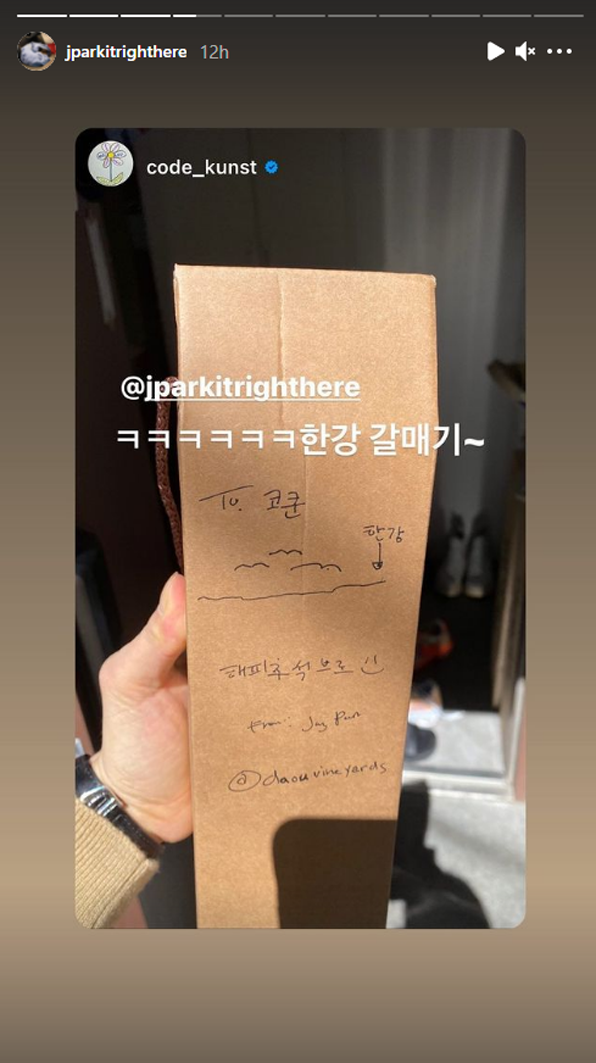 jparkitrighthere 12h
code_kunst
@jparkitrighthere
ㅋㅋㅋㅋㅋㅋㅋ한강 갈매기~
To. 코쿤
한강
해피추석브로
from: Jay Park
@daouvineyards